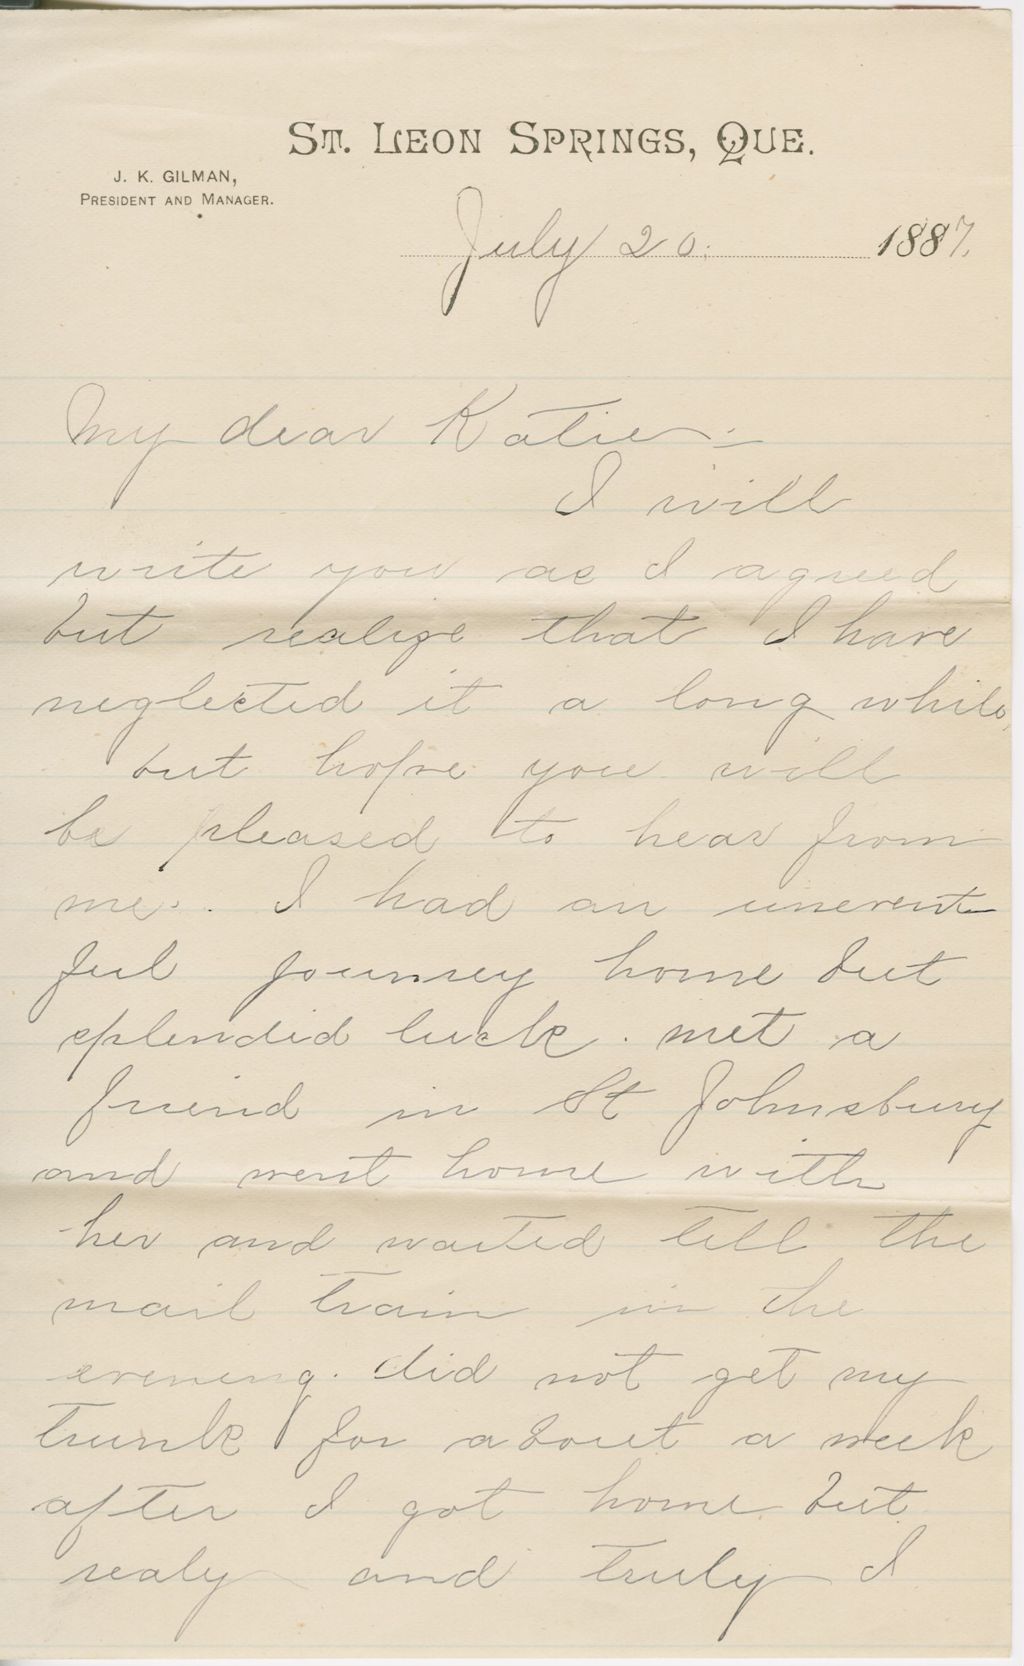 St. Leon Springs, Que.
J. K. GILMAN,
President and Manager.
July 20. 1887.
My dear Katie:-
I will
write you as I agreed
but realize that I have
neglected it a long while,
but hope you will
be pleased to hear from
me. . I had an unevent-
ful journey home but
splendid luck. met a
friend in St Johnsbury
and went home with
her and waited till the
mail train in the
evening. did not get my
trunk for about a week
after I got home but
realy and truly I